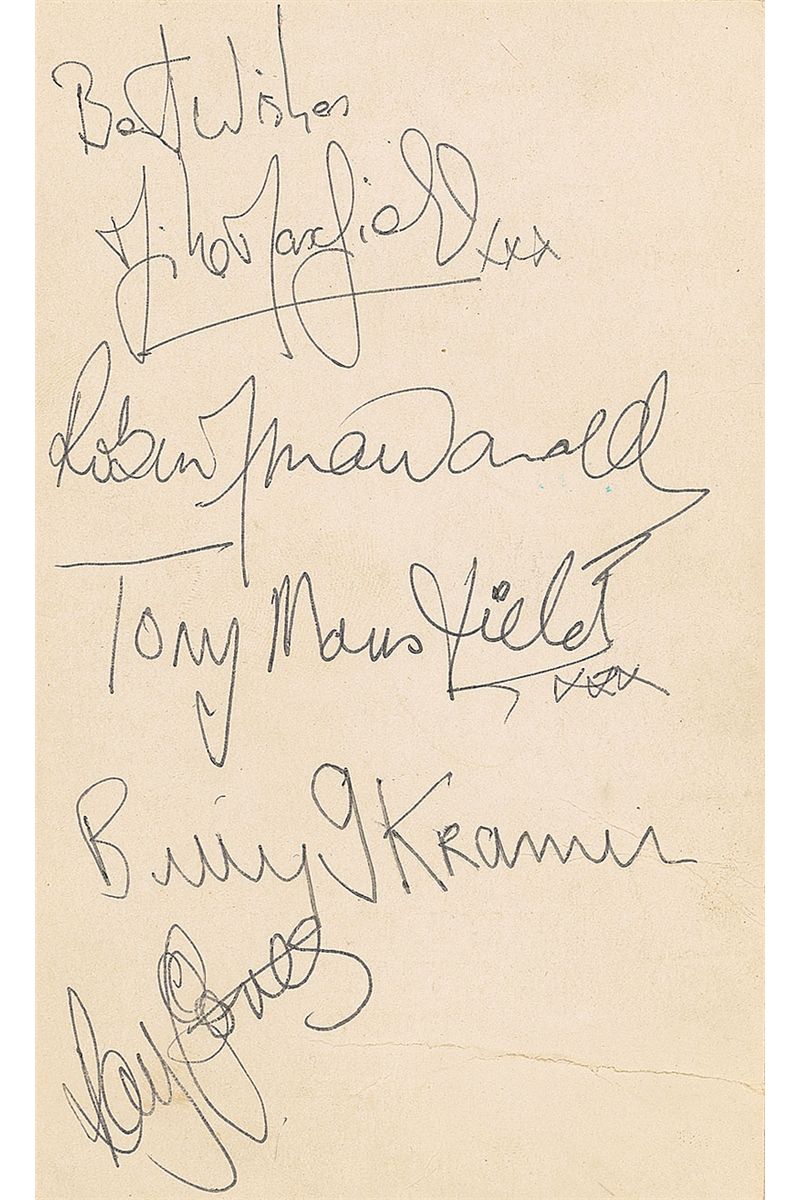 Best Wishes
Mike Maxfield xxx
Robin MacDonald
Tony Mansfield
xxx
Billy J Kramer
Ray Jones